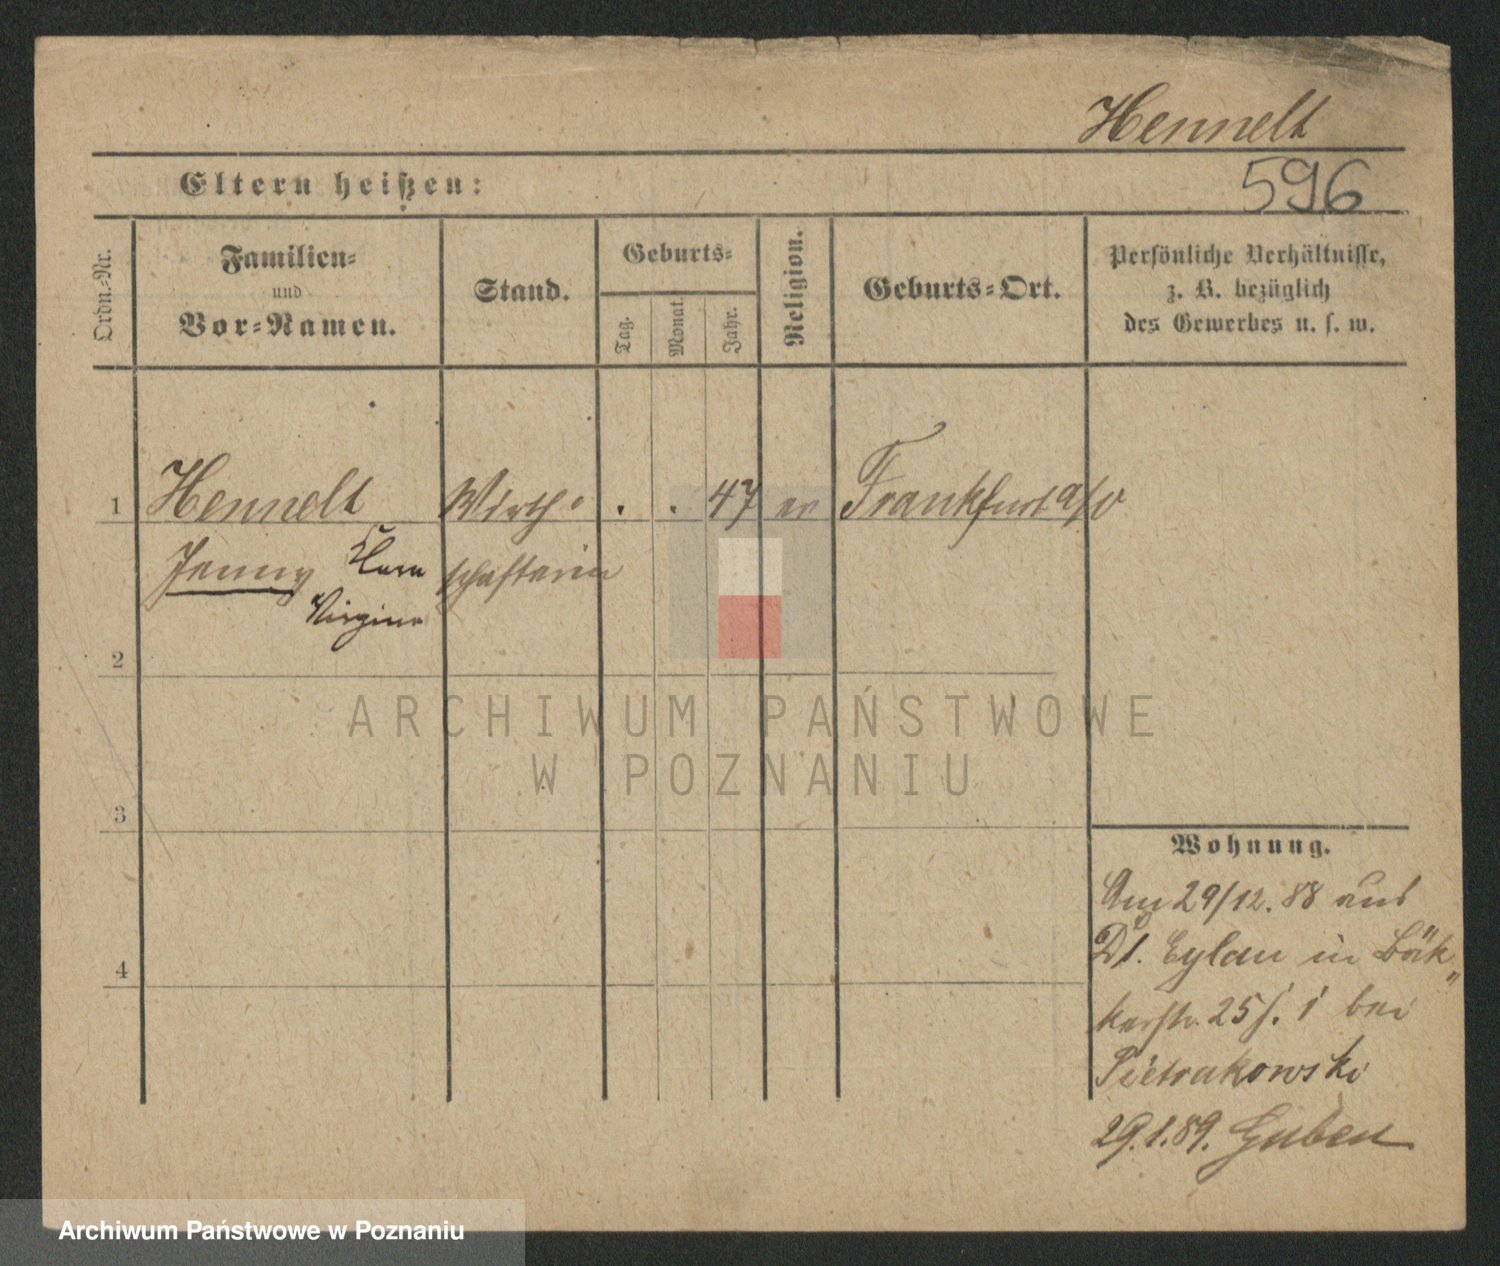 Hennelt
Eltern heißen:
596
Ordn.-Nr.
Familien-
und
Vor-Namen.
Stand.
Geburts-
Tag.
Monat.
Jahr.
Religion.
Geburts-Ort.
Persönliche Verhältnisse,
z. B. bezüglich
des Gewerbes u. s. w.
1 Hennelt Wirth- . . 47 ev Frankfurt a/O
Jenny Clara schafterin
Virginie
2
ARCHIWUM PAŃSTWOWE
W POZNANIU
3
4
Wohnung.
Am 29/12. 88 aus
Dt. Eylau in Bäk-
kerstr. 25 I bei
Pietrakowski
29.1.89. Guben
Archiwum Państwowe w Poznaniu